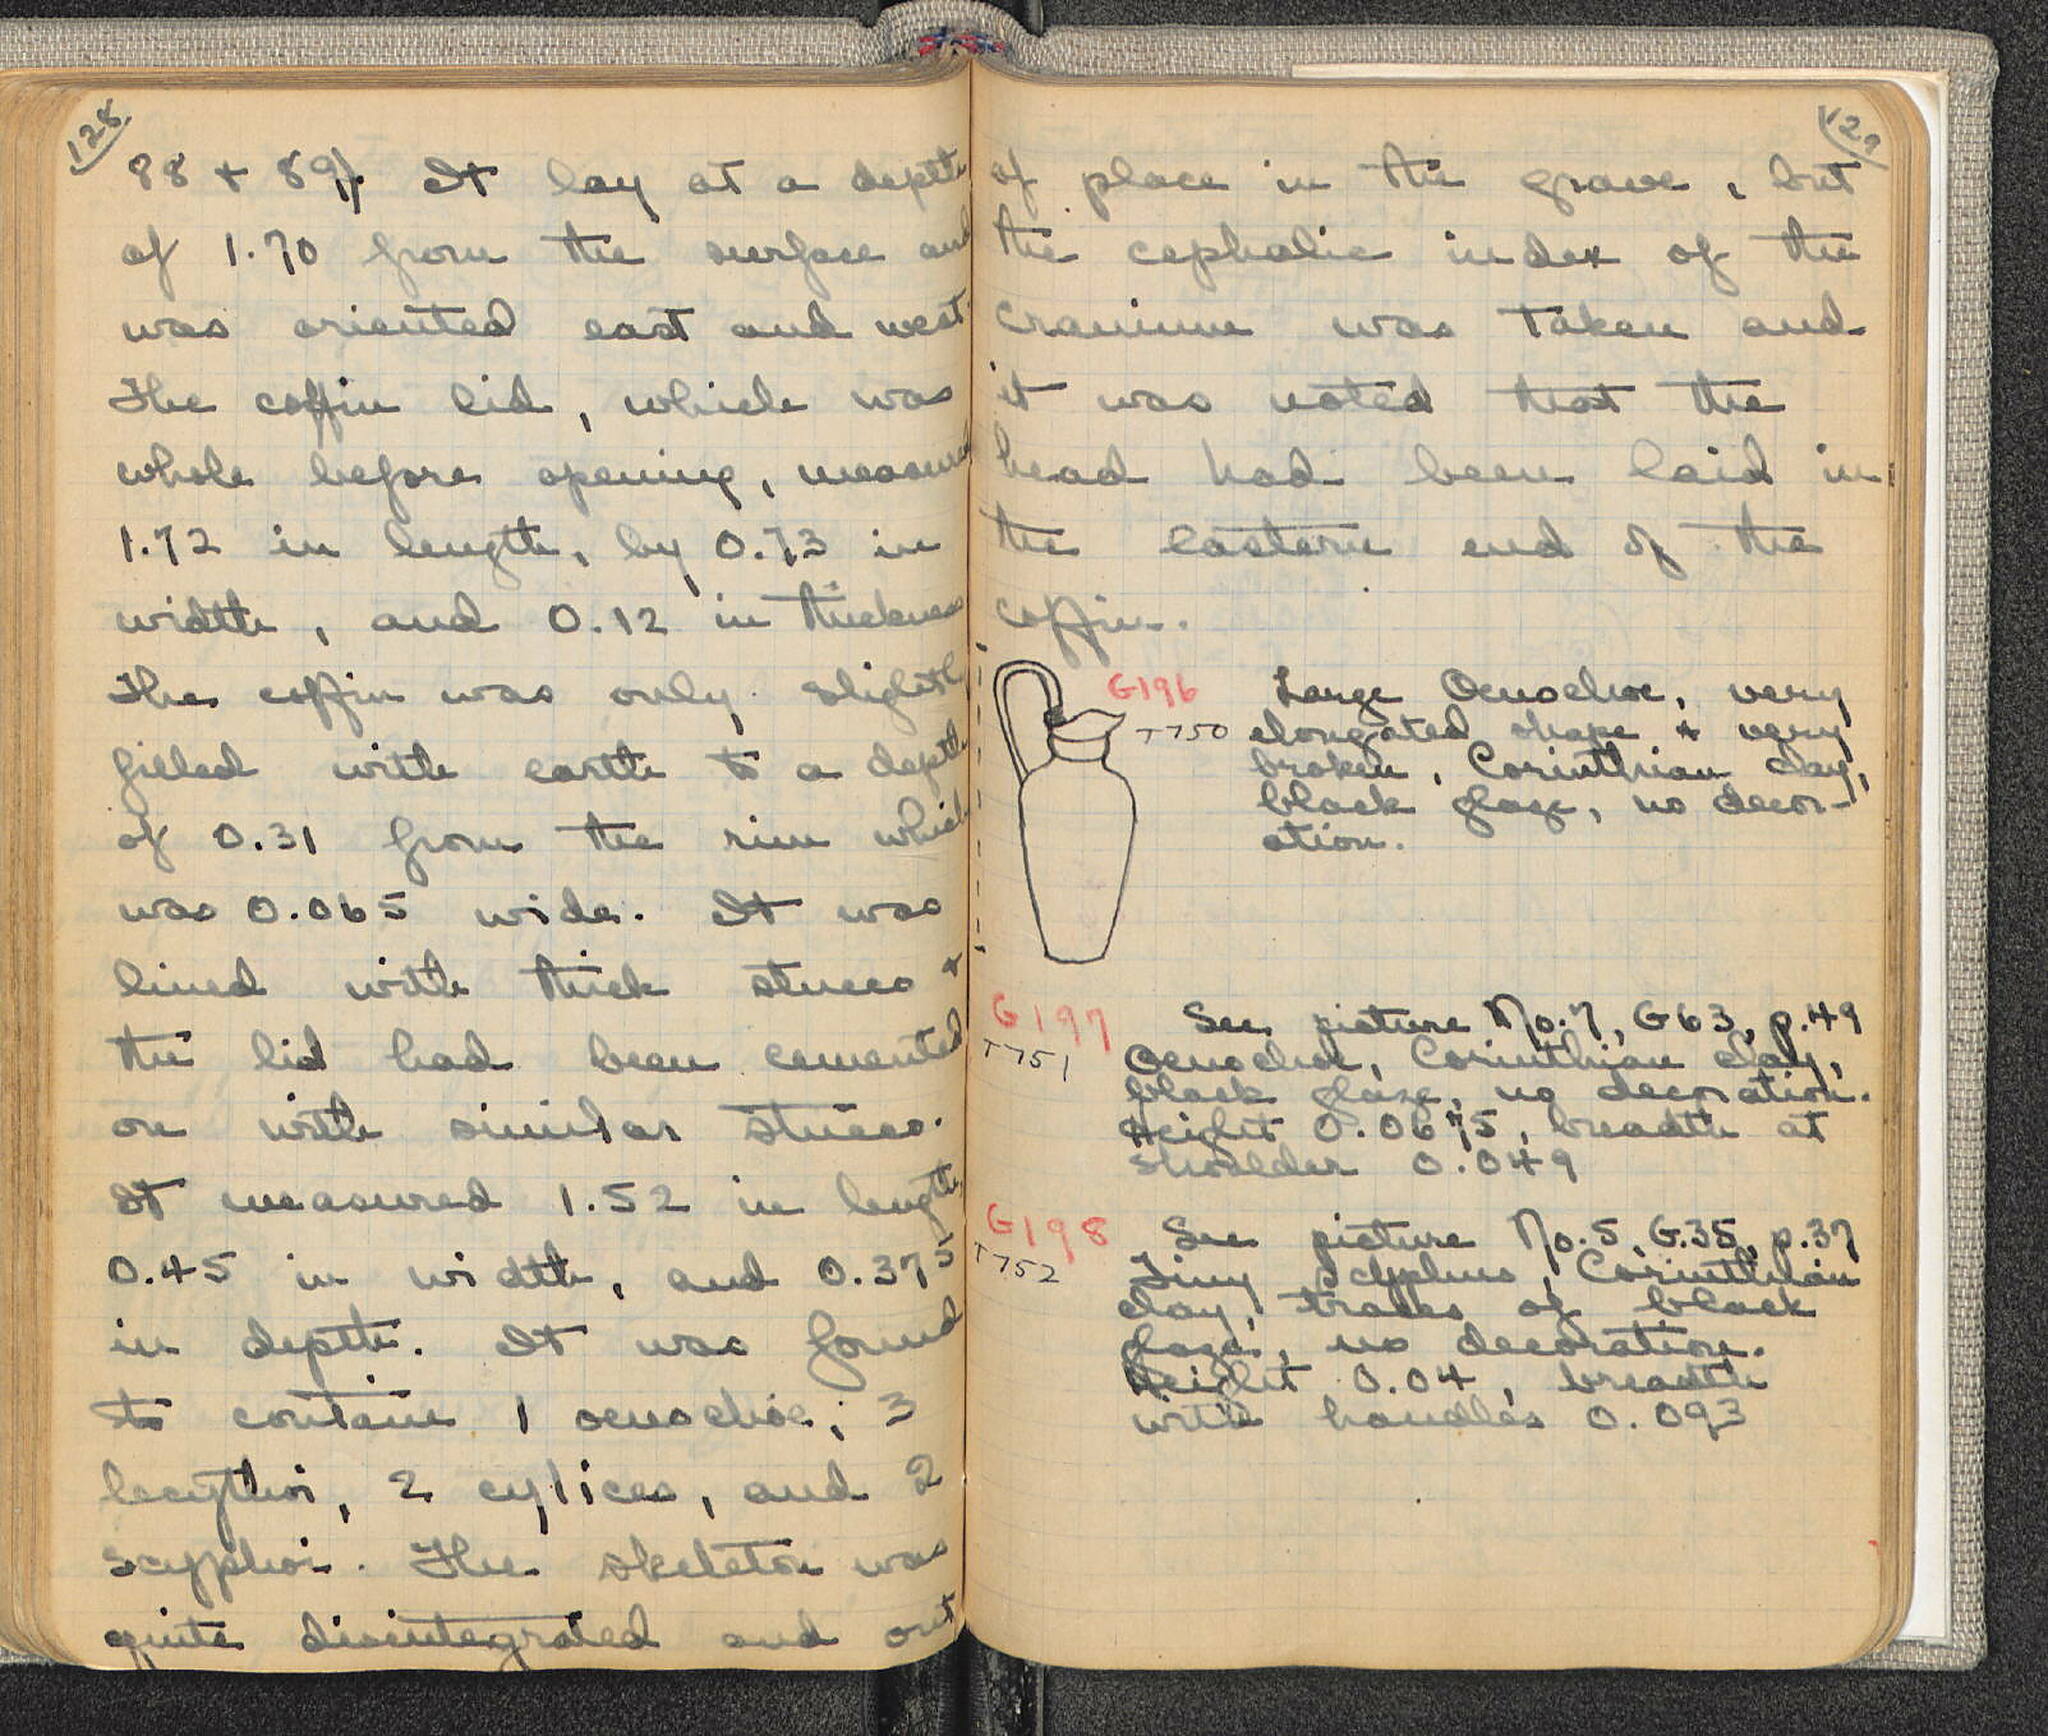 128
88 + 89). It lay at a depth
of 1.70 from the surface and
was oriented east and west.
The coffin lid, which was
whole before opening, measured
1.72 in length, by 0.73 in
width, and 0.12 in thickness
The coffin was only slightly
filled with earth to a depth
of 0.31 from the rim which
was 0.065 wide. It was
lined with thick stucco +
the lid had been cemented
on with similar stucco.
It measured 1.52 in length,
0.45 in width, and 0.375
in depth. It was found
to contain 1 oenochoe, 3
lecythoi, 2 cylices, and 2
scyphoi. The skeleton was
quite disintegrated and out
129
of place in the grave, but
the cephalic index of the
cranium was taken and
it was noted that the
head had been laid in
the eastern end of the
coffin.
G196
T750
Large Oenochoe, very
elongated shape + very
broken, Corinthian clay,
black glaze, no decor-
ation.
G197
T751
See picture No. 7, G63, p. 49
Oenochoe, Corinthian clay,
black glaze, no decoration.
Height 0.0675, breadth at
shoulder 0.049
G198
T752
See picture No. 5, G.35, p. 37
Tiny scyphus, Corinthian
clay, traces of black
glaze, no decoration.
Height 0.04, breadth
with handles 0.093